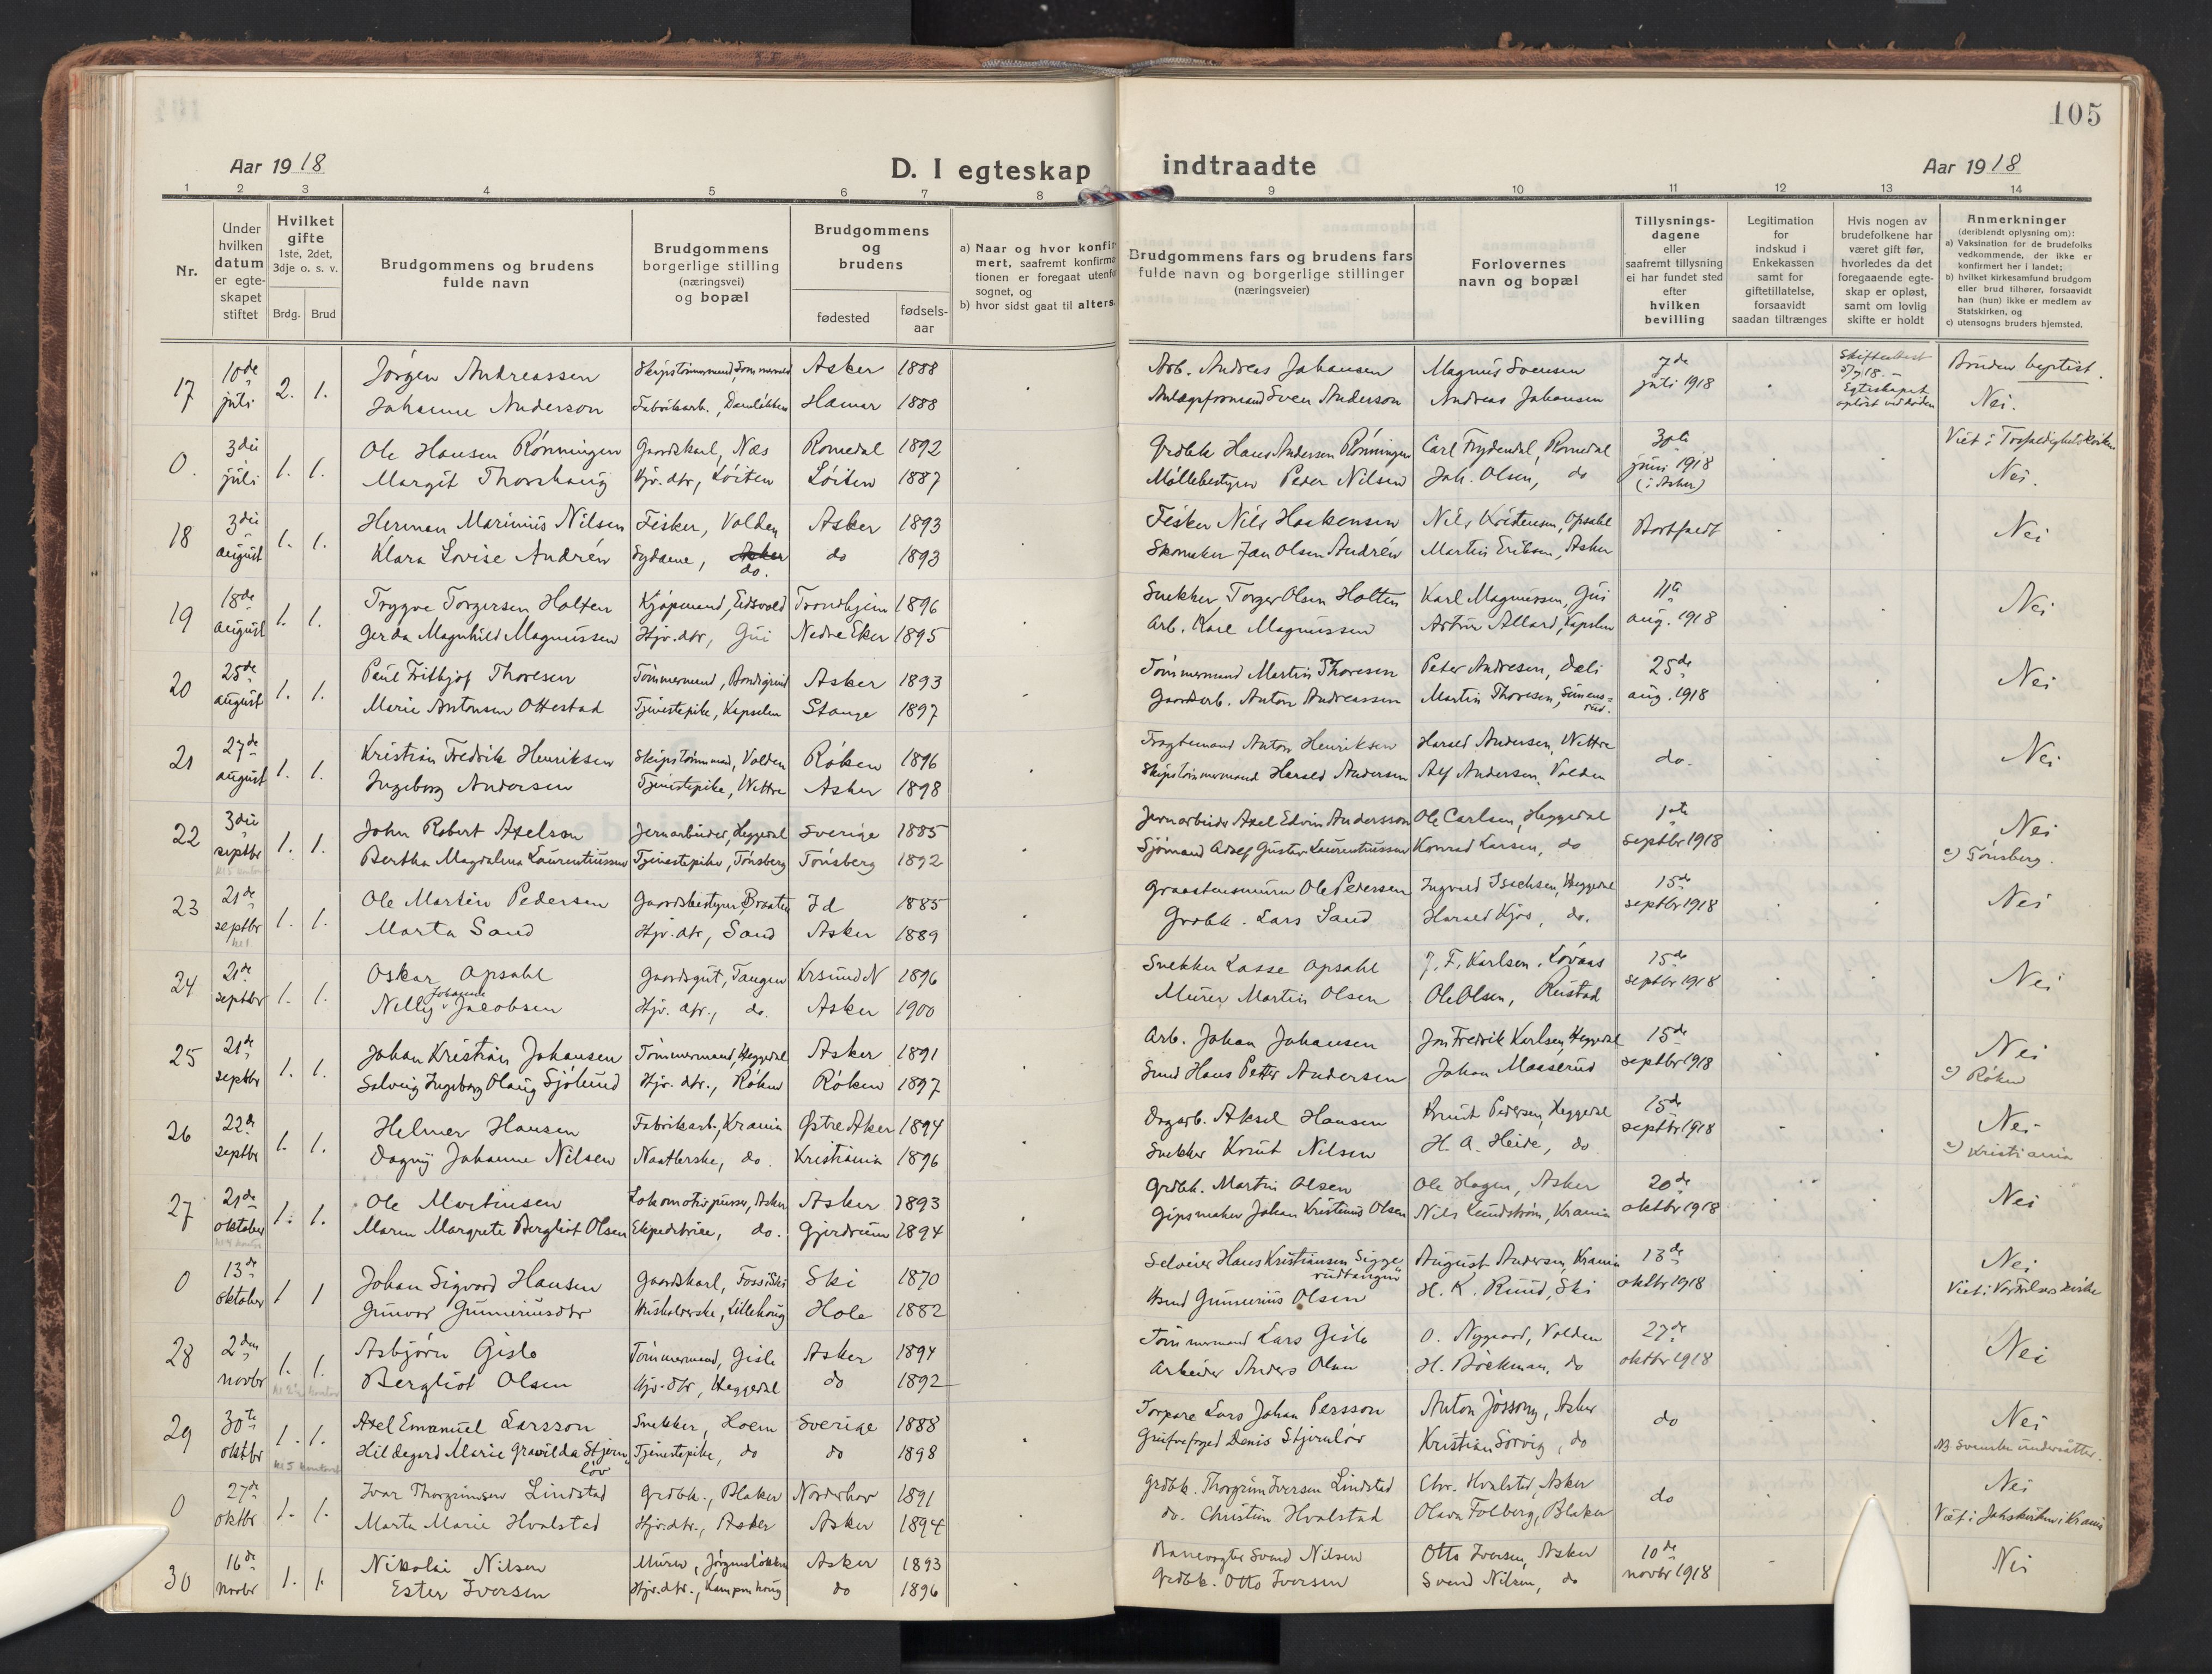 105
Aar 1918
D. I egteskap indtraadte
Aar 1918
1 2 3 4 5 6 7 8 9 10 11 12 13 14
Nr.
Under
hvilken
datum
er egte-
skapet
stiftet
Hvilket
gifte
1ste, 2det,
3dje o. s. v.
Brdg. Brud
Brudgommens og brudens
fulde navn
Brudgommens
borgerlige stilling
(næringsvei)
og bopæl
Brudgommens
og
brudens
fødested
fødsels-
aar
a) Naar og hvor konfir
mert, saafremt konfirma
tionen er foregaat utenfo
sognet, og
b) hvor sidst gaat til alters.
Brudgommens fars og brudens fars
fulde navn og borgerlige stillinger
(næringsveier)
Forlovernes
navn og bopæl
Tillysnings-
dagene
eller
saafremt tillysning
ei har fundet sted
efter
hvilken
bevilling
Legitimation
for
indskud i
Enkekassen
samt for
giftetillatelse,
forsaavidt
saadan tiltrænges
Hvis nogen av
brudefolkene har
været gift før,
hvorledes da det
foregaaende egte-
skap er opløst,
samt om lovlig
skifte er holdt
Anmerkninger
(deriblandt oplysning om):
a) Vaksination for de brudefolks
vedkommende, der ikke er
konfirmert her i landet;
b) hvilket kirkesamfund brudgom
eller brud tilhører, forsaavidt
han (hun) ikke er medlem av
Statskirken, og
c) utensogns bruders hjemsted.
17 10de juli 2. 1. Jörgen Andreassen Skipstömmermand, Asker 1888 Arb. Andreas Johansen Magnus Svensen 7de juli 1918 Bruden baptist.
Johanne Anderson Fabrikarb., Hamar 1888 Anlægsformand Sven Anderson Andreas Johansen Egteskapet opløst ved döden Nei.
0. 3die juli 1. 1. Ole Hansen Rönningen Gaardskarl, Næs Romedal 1892 Grdbk. Hans Andersen Rönningen Carl Frydendal, Romedal 30te juni 1918 (i Asker) Viet i Trefoldighetskirken
Margit Thorshaug Hjv. dtr, Löiten Löiten 1887 Möllebestyrer Peder Nilsen Joh. Olsen, do Nei.
18 3die august 1. 1. Herman Marinius Nilsen Fisker, Volden Asker 1893 Fisker Nils Haakensen Nils Kristensen, Opsahl Bortfaldt Nei
Klara Lovise Andrén Sydame, Asker do. do 1893 Skomaker Jan Olsen Andrén Martin Eriksen, Asker
19 18de august 1. 1. Trygve Torgersen Holten Kjöpmand, Eidsvold Trondhjem 1896 Snekker Torger Olsen Holten Karl Magnussen, Gui 11te aug. 1918 Nei
Gerda Magnhild Magnussen Hjv. dtr, Gui Nedre Eker 1895 Arb. Karl Magnussen Artur Allard, Kapselen
20 25de august 1. 1. Paul Frithjof Thoresen Tömmermand, Bondigrind Asker 1893 Tömmermand Martin Thoresen Peter Andresen, Dæli 25de aug. 1918 Nei
Marie Antonsen Ottestad Tjenestepike, Kapselen Stange 1897 Gaardarb. Anton Andreassen Martin Thoresen,
21 27de august 1. 1. Kristian Fredrik Henriksen Skipstömmermand, Volden Röken 1896 Fragtemand Anton Henriksen Harald Andersen, Nettre do. Nei
Ingeborg Andersen Tjenestepike, Nettre Asker 1898 Skipstömmermand Harald Andersen Alf Andersen, Volden
22 3die septbr 1. 1. John Robert Axelson Jernarbeider, Heggedal Sverige 1885 Jernarbeider Axel Edvin Andersson Ole Carlsen, Heggedal 1ste septbr 1918 Nei
Bertha Magdalena Laurentiussen Tjenestepike, Tönsberg Tönsberg 1892 Sjömand Adolf Gustav Laurentiussen Konrad Larsen, do c) Tönsberg.
23 21de septbr 1. 1. Ole Martin Pedersen Gaardsbestyrer, Braaten Id 1885 Graastensmurer Ole Pedersen Ingvald Isachsen, Heggedal 15de septbr 1918 Nei
Marta Sand Hjv. dtr, Sand Asker 1889 Grdbk. Lars Sand Harald Kjos, do.
24 21de septbr 1. 1. Oskar Opsahl Gaardsgut, Tangen Krsund N 1896 Snekker Lasse Opsahl J. F. Karlsen, Lövaas 15de septbr 1918 Nei
Nelly Johanne Jacobsen Hjv. dtr., do. Asker 1900 Murer Martin Olsen Ole Olsen, Rustad
25 21de septbr 1. 1. Johan Kristian Johansen Tömmermand, Heggedal Asker 1891 Arb. Johan Johansen Jon Fredrik Karlsen, Heggedal 15de septbr 1918 Nei
Solveig Ingeborg Olaug Sjölund Hjv. dtr., Röken Röken 1897 Smed Hans Petter Andersen Johan Maaserud c) Röken
26 22de septbr 1. 1. Helmer Hansen Fabrikarb., Krania Østre Aker 1894 Dagarb. Aksel Hansen Knut Pedersen, Heggedal 15de septbr 1918 Nei
Dagny Johanne Nilsen Naatlerske, do. Kristiania 1896 Snekker Knut Nilsen H. A. Heide, do c) Kristiania
27 21de oktober 1. 1. Ole Martinsen Lokomotivpusser, Asker Asker 1893 Grdbk. Martin Olsen Ole Hagen, Asker 20de oktbr 1918 Nei
Maren Margrete Bergliot Olsen Ekspeditrice, do. Gjerdrum 1894 Gipsmaker Johan Kristinius Olsen Nils Lundström, Krania
0 13de oktober 1 1 Johan Sigvard Hansen Gaardskarl, Foss i Ski Ski 1870 Selveier Hans Kristiansen Siggerudtangen August Andersen, Krania 13de oktbr 1918 Nei
Gunvor Gunneriusdtr Husholderske, Lillehaug Hole 1882 Gunnerius Olsen H. K. Ruud, Ski Viet i Vor Frelsers kirke
28 2den novbr 1. 1. Asbjörn Gisle Tömmermand, Gisle Asker 1894 Tömmermand Lars Gisle O. Nygaard, Volden 27de oktbr 1918 Nei
Bergliot Olsen Hjv. dtr, Heggedal do 1892 Arbeider Anders Olsen H. Böckman, do
29 30te oktbr 1. 1. Axel Emanuel Larsson Snekker, Hoem Sverige 1888 Torpare Lars Johan Persson Anton Jössong, Asker do Nei
Hildegard Marie Gravilda Stjernlöv Tjenestepike, do do 1898 Grufvefoged Denis Stjernlöv Kristian Sörvig, do NB Svenske undersåtter.
0 27de oktbr 1. 1. Ivar Thorgrimsen Lindstad Grdbk., Blaker Norderhov 1891 Grdbk. Thorgrim Iversen Lindstad Chr. Hvalstad, Asker do Nei
Marta Marie Hvalstad Hjv. dtr., Asker Asker 1894 do. Christian Hvalstad Olava Folberg, Blaker Viet i Jakobskirken i Krania
30 16de novbr 1. 1. Nikolai Nilsen Murer, Jörgensløkken Asker 1893 Banevogter Svend Nilsen Otto Iversen, Asker 10de novbr 1918 Nei
Ester Iversen Hjv. dtr., Kampenhaug do 1896 Grdbk. Otto Iversen Svend Nilsen, do